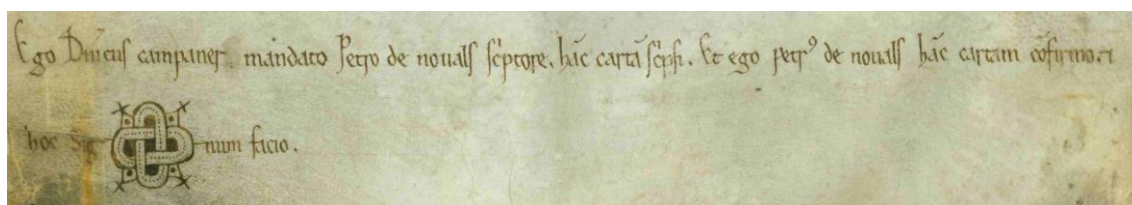 Ego Dm̄icuſ campaner, mandato Petro de nouals ſc̄ptore, hāc cartā ſc̄pſi. Et ego petr⁹ de nouals hāc cartam cōfirmo. ⁊
hoc Sig num facio.